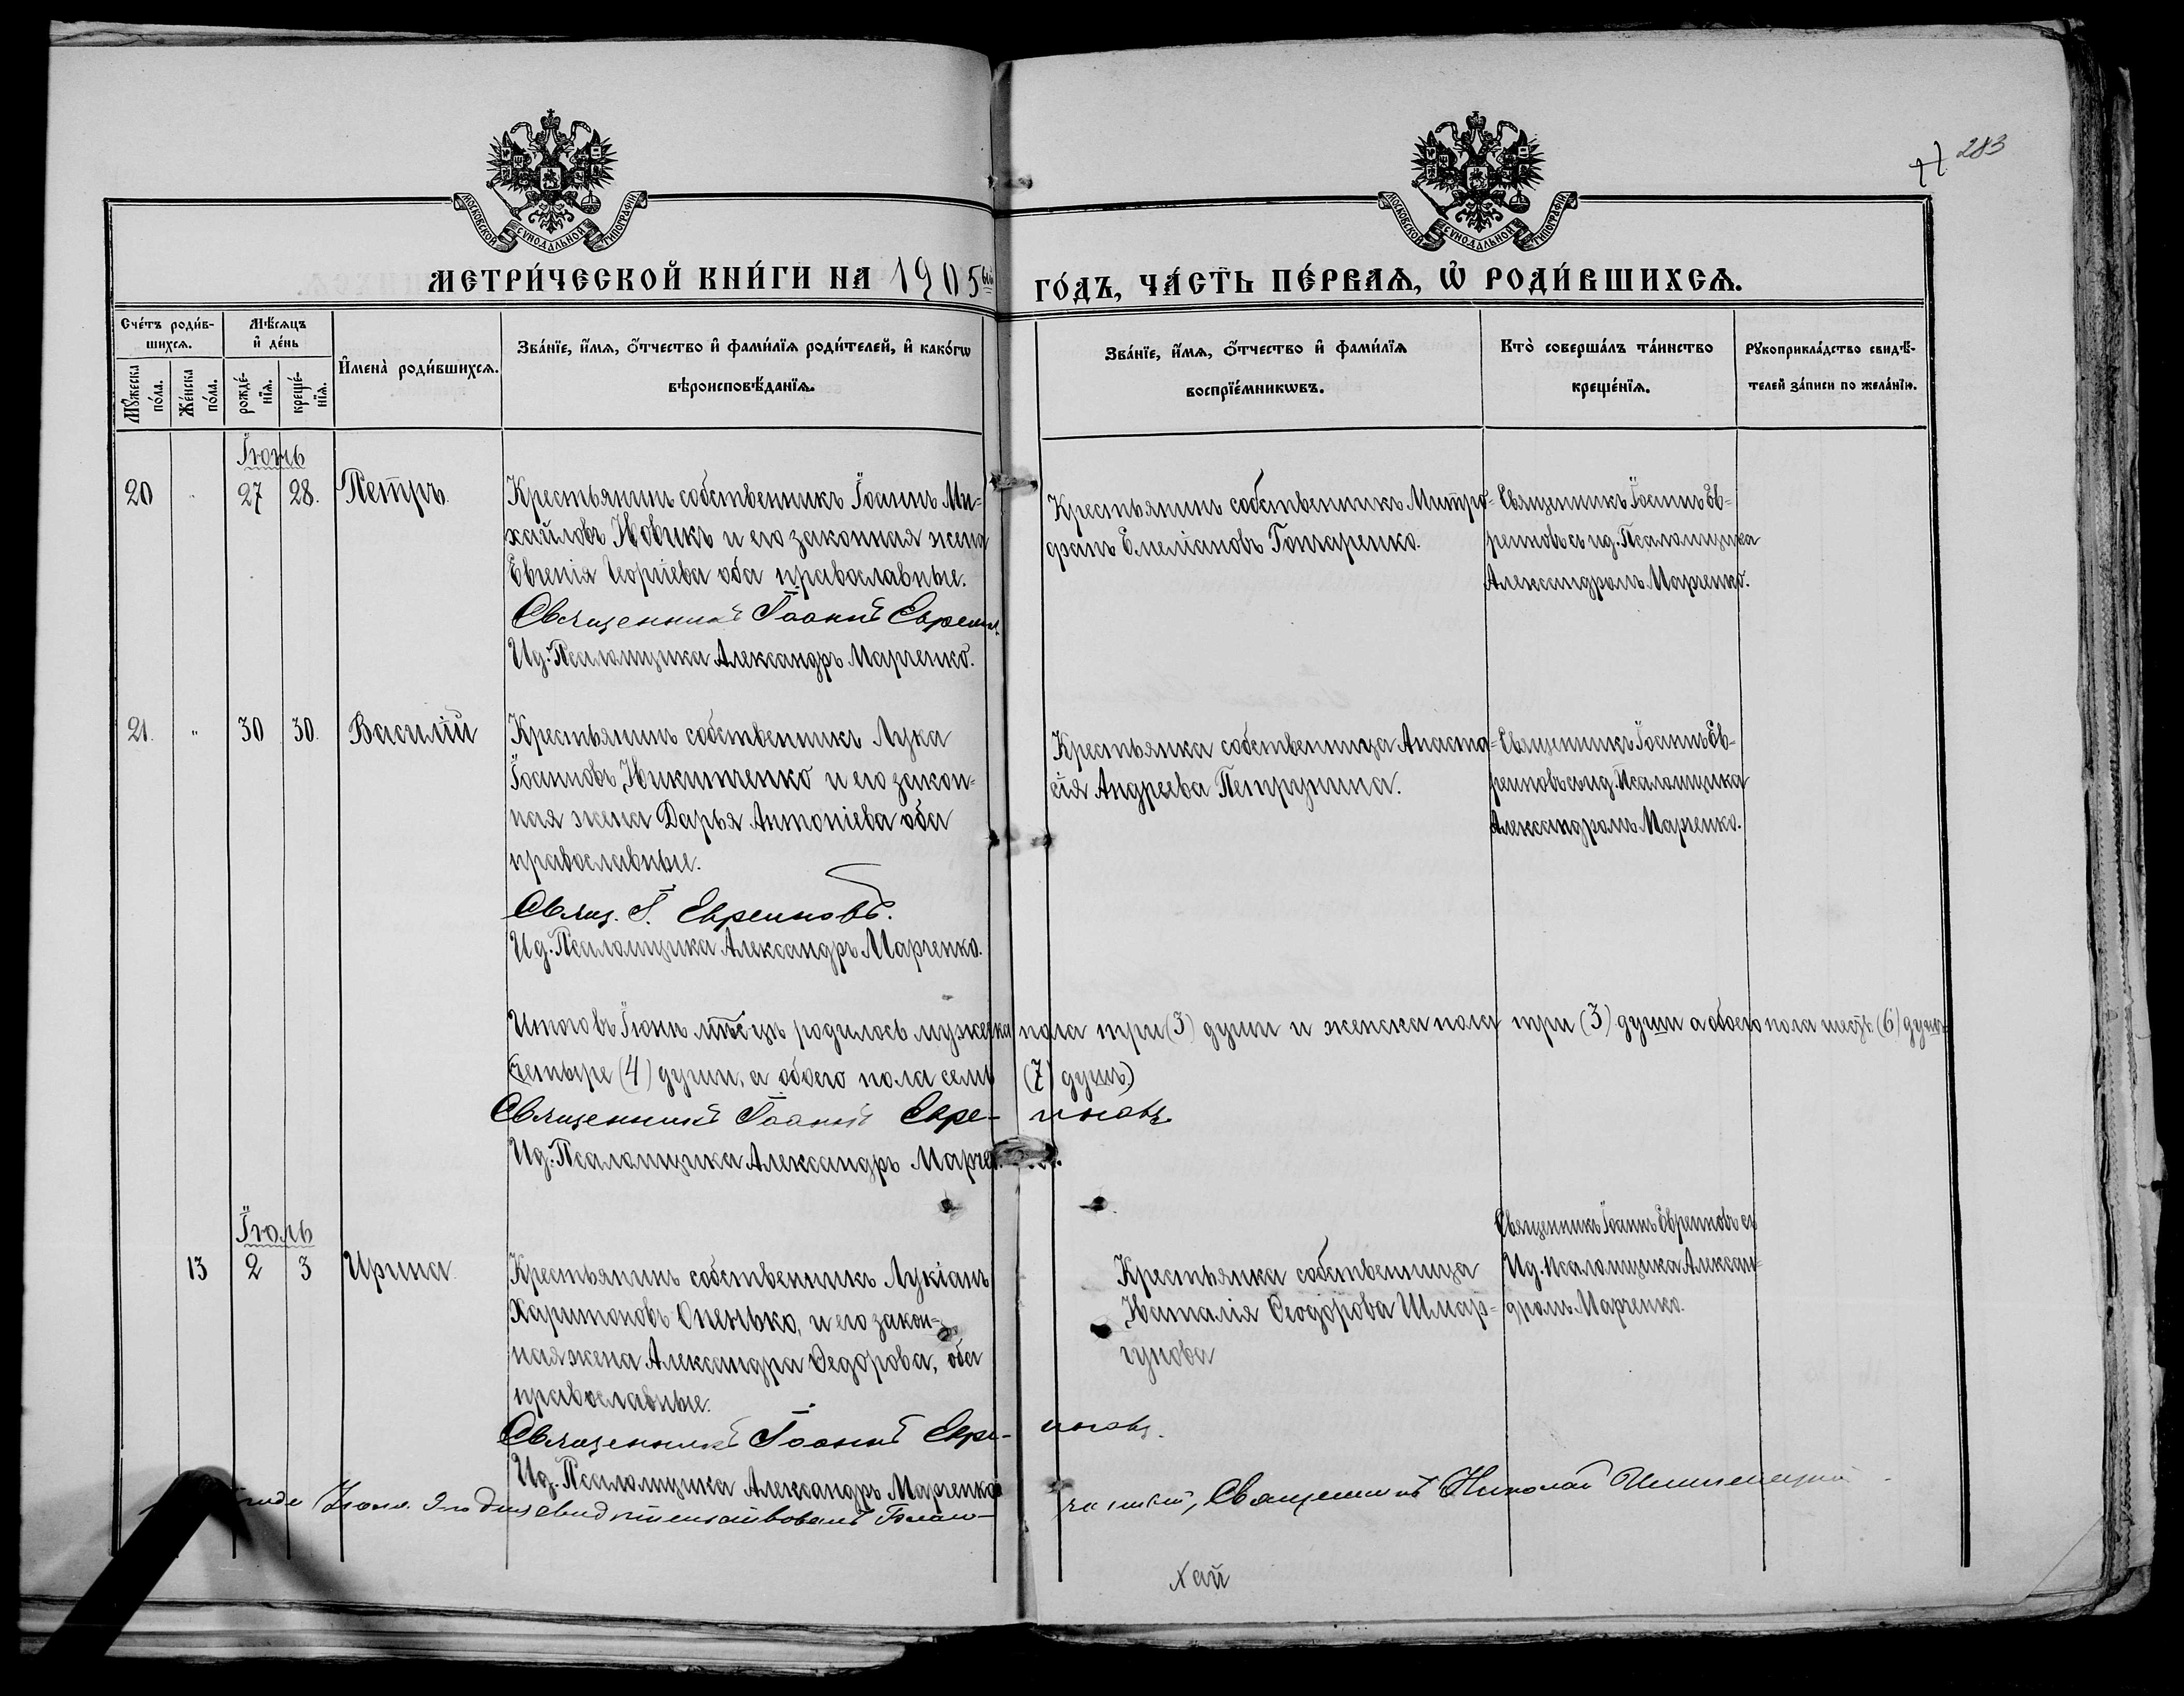 283
МОСКОВСКОЙ СѴНОДАЛЬНОЙ ТИПОГРАФІИ
МОСКОВСКОЙ СѴНОДАЛЬНОЙ ТИПОГРАФІИ
МЕТРИ́ЧЕСКОЙ КНИ́ГИ НА 1905ый ГО́ДЪ, ЧА́СТЬ ПЕ́РВАѦ, Ѡ҆ РОДИ́ВШИХСѦ.
Сче́тъ роди́в-
шихсѧ.
Мѣ́сѧцъ
и҆ де́нь
Мꙋ́жеска
по́ла.
Же́нска
по́ла.
рожде́-
нїѧ.
креще́-
нїѧ.
И҆мена̀ роди́вшихсѧ.
Зва́нїе, и҆́мѧ, ѻ҆́тчество и҆ фами́лїѧ роди́телей, и҆ како́гѡ
вѣроисповѣ́данїѧ.
Зва́нїе, и҆́мѧ, ѻ҆́тчество и҆ фами́лїѧ
воспрїе́мникѡвъ.
Кто̀ соверша́лъ та́инство
креще́нїѧ.
Рꙋкоприкла́дство свидѣ́-
телей за́писи по жела́нїю.
Іюнь
20 " 27 28. Петръ.
Крестьянинъ собственникъ Іоаннъ Ми-
хайловъ Новикъ и его законная жена
Евгенія Георгіева оба православные.
Священникъ Іоаннъ Евреинов
Ид. Псаломщика Александръ Марченко.
Крестьянинъ собственникъ Митро-
фанъ Емеліановъ Гончаренко.
Священникъ Іоаннъ Ев-
реиновъ съ ид. Псаломщика
Александромъ Марченко.
21. " 30 30. Василій
Крестьянинъ собственникъ Лука
Іоанновъ Никитченко и его закон-
ная жена Дарья Антоніева оба
православные.
Свящ. І. Евреиновъ.
Ид. Псаломщика Александръ Марченко.
Крестьянка собственница Анаста-
сія Андреева Петрунина.
Священникъ Іоаннъ Ев-
реиновъ съ ид. Псаломщика
Александромъ Марченко.
Итого въ Іюнѣ мѣсяцѣ родилось мужеска пола три (3) души и женска пола три (3) души а обоего пола шесть (6) душъ
(четыре (4) души, а обоего пола семь (7) душъ)
Священникъ Іоаннъ Евре- иновъ.
Ид. Псаломщика Александръ Марче
Іюль
13 2 3 Ирина
Крестьянинъ собственникъ Лукіанъ
Харитоновъ Опенько, и его закон-
ная жена Александра Ѳедорова, оба
православные.
Священникъ Іоаннъ Евре- иновъ.
Ид. Псаломщика Александръ Марченко
Крестьянка собственница
Наталія Ѳеодорова Шмар-
гунова
Священникъ Іоаннъ Евреиновъ съ
Ид. Псаломщика Алексан-
дромъ Марченко.
Іюля 9го дня свидѣтельствовалъ Благо- чинный, Священникъ Николай
хай